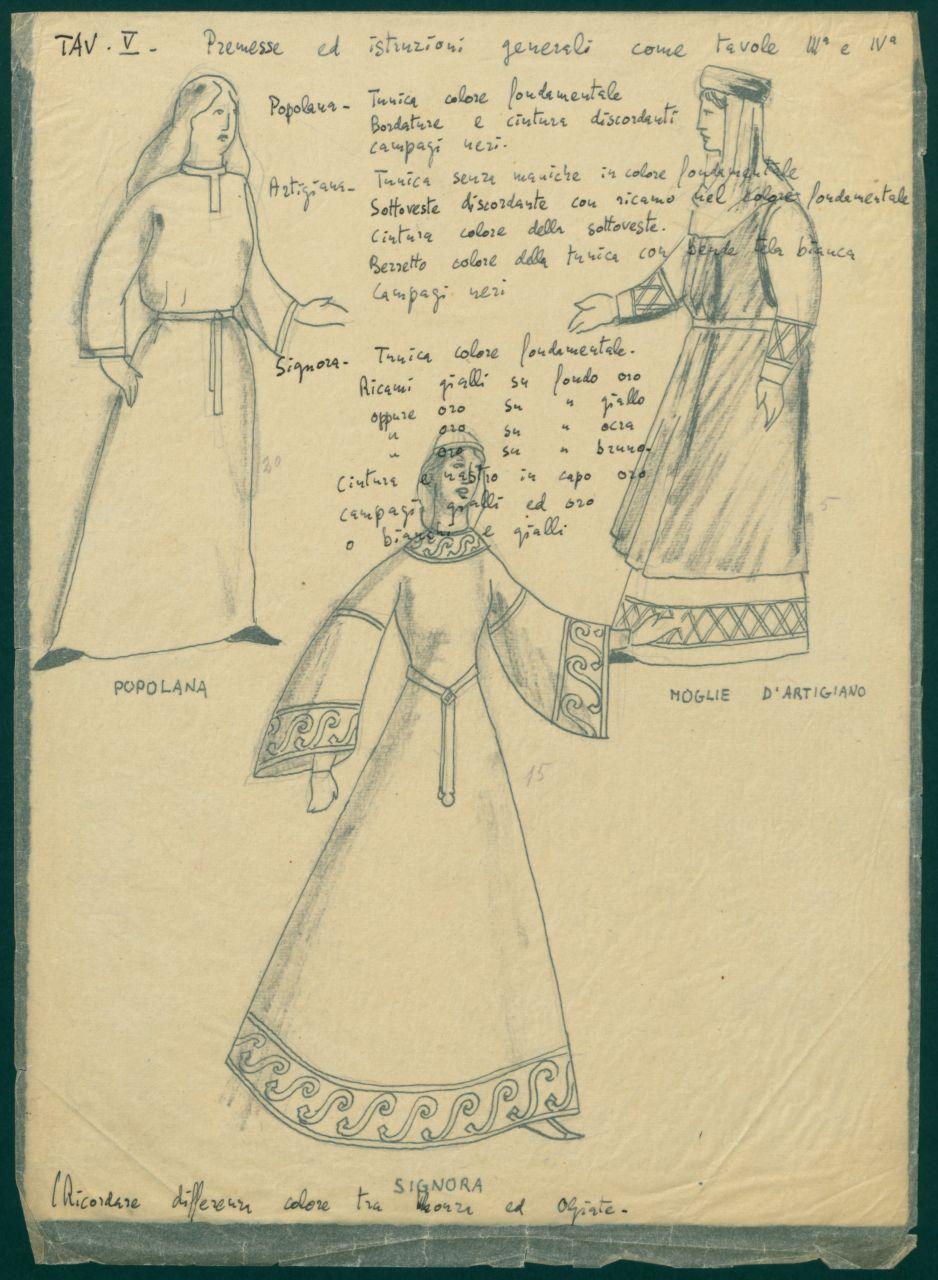 TAV. V - Premesse ed istruzioni generali come tavole IIIª e IVª
Popolana - Tunica colore fondamentale
Bordature e cintura discordanti
campagi neri.
Artigiana - Tunica senza maniche in colore fondamentale
Sottoveste discordante con ricamo nel colore fondamentale
Cintura colore della sottoveste.
Berretto colore della tunica con bende tela bianca
Campagi neri
Signora - Tunica colore fondamentale.
Ricami gialli su fondo oro
oppure oro su " giallo
" oro su " ocra
" oro su " bruno.
Cintura e nastro in capo oro
campagi gialli ed oro
o bianchi e gialli
20
5
POPOLANA
MOGLIE D'ARTIGIANO
15
SIGNORA
(Ricordare differenza colore tra Monza ed Ogiate.